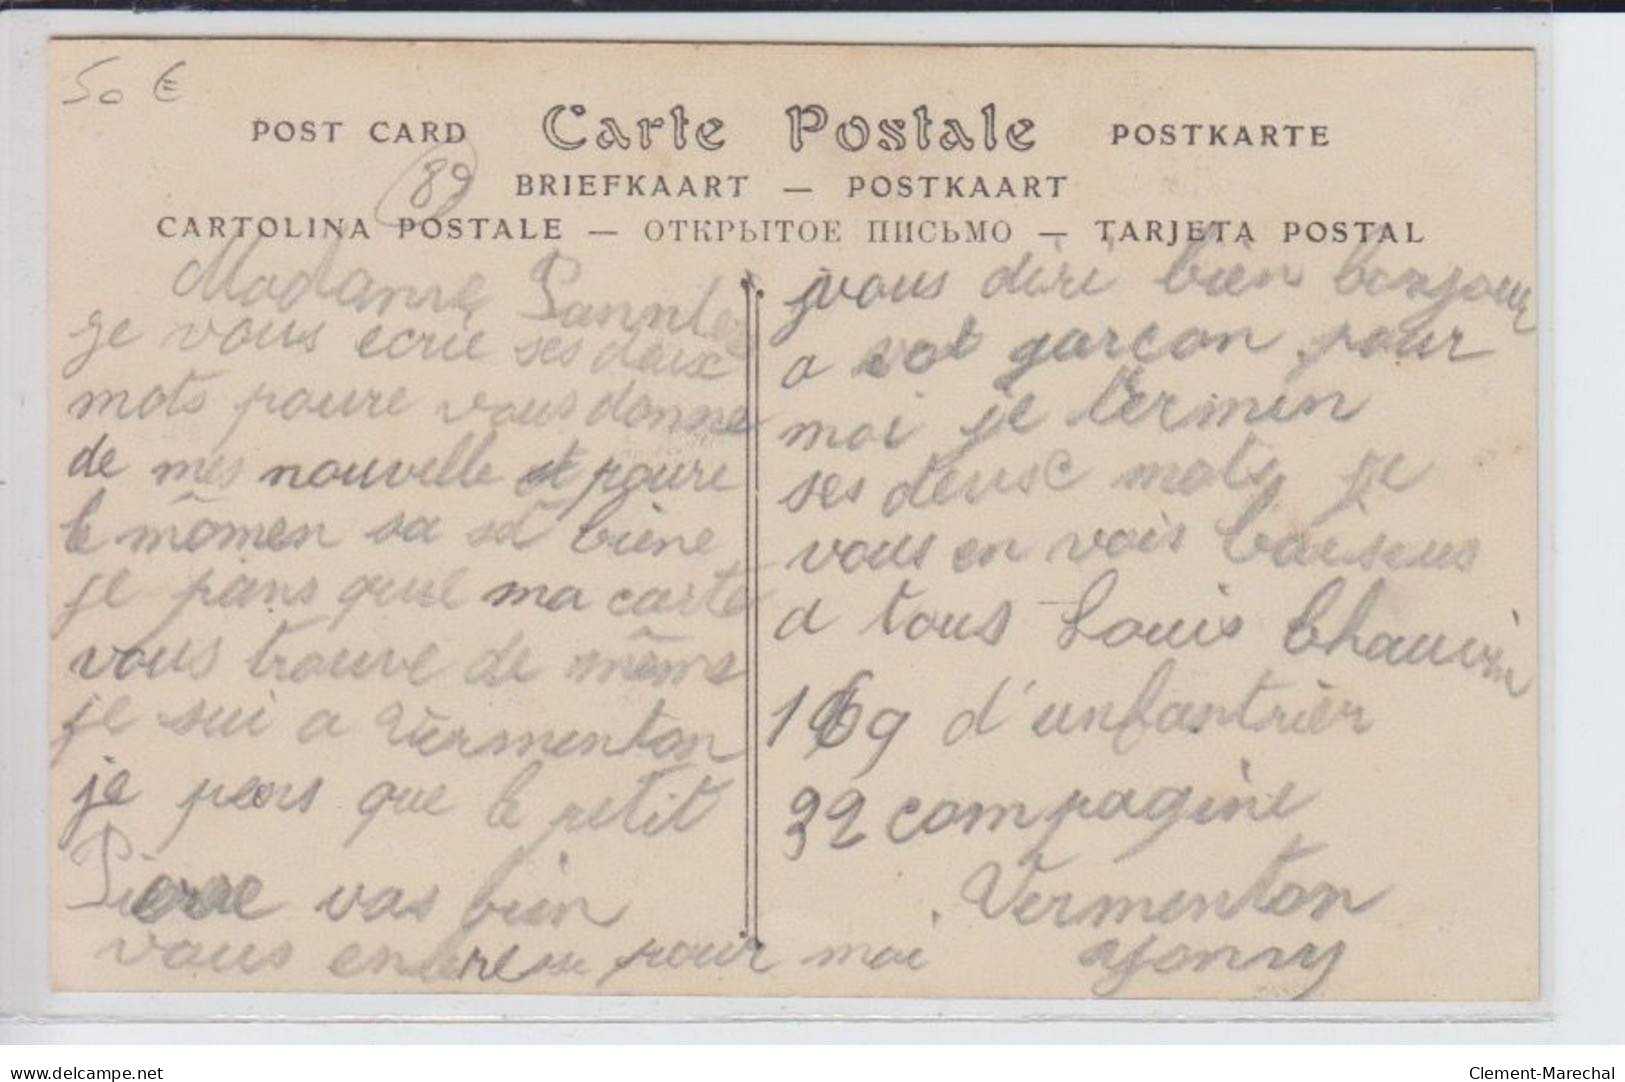 50 €
POST CARD Carte Postale POSTKARTE
89
BRIEFKAART — POSTKAART
CARTOLINA POSTALE — ОТКРЫТОЕ ПИСЬМО — TARJETA POSTAL
Madame
je vous ecrie ses deux
mots poure vous donne
de mes nouvelle et poure
le mômen sa biene
je pans que ma carte
vous trouve de même
je sui a Vermenton
je pens que le petit
Pierre vas bien
vous pour moi
vous diri bien bonjour
a vot garcon pour
moi je termin
ses deusc mots je
vous en vois baiseus
a tous Louis Chauvin
169 d'unfantrier
32 compagine
Vermenton
Yonny
www.delcampe.net
Clement-Marechal